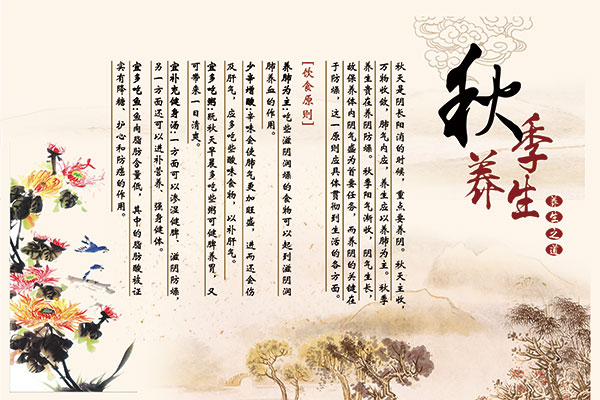 秋季养生
养生之道
秋天是阴长阳消的时候，重点要养阴。秋天主收，
万物收敛，肺气内应，养生应以养肺为主。秋季
养生贵在养阴防燥。秋季阳气渐收，阴气生长，
故保养体内阴气成为首要任务，而养阴的关键在
于防燥，这一原则应具体贯彻到生活的各方面。
[饮食原则]
养肺为主:吃些滋阴润燥的食物可以起到滋阴润
肺养血的作用。
少辛增酸:辛味会使肺气更加旺盛，进而还会伤
及肝气，应多吃些酸味食物，以补肝气。
宜多吃粥:既秋天早晨多吃些粥可健脾养胃，又
可带来一日清爽。
宜补充健身汤:一方面可以渗湿健脾、滋阴防燥，
另一方面还可以进补营养、强身健体。
宜多吃鱼:鱼肉脂肪含量低，其中的脂肪酸被证
实有降糖、护心和防癌的作用。